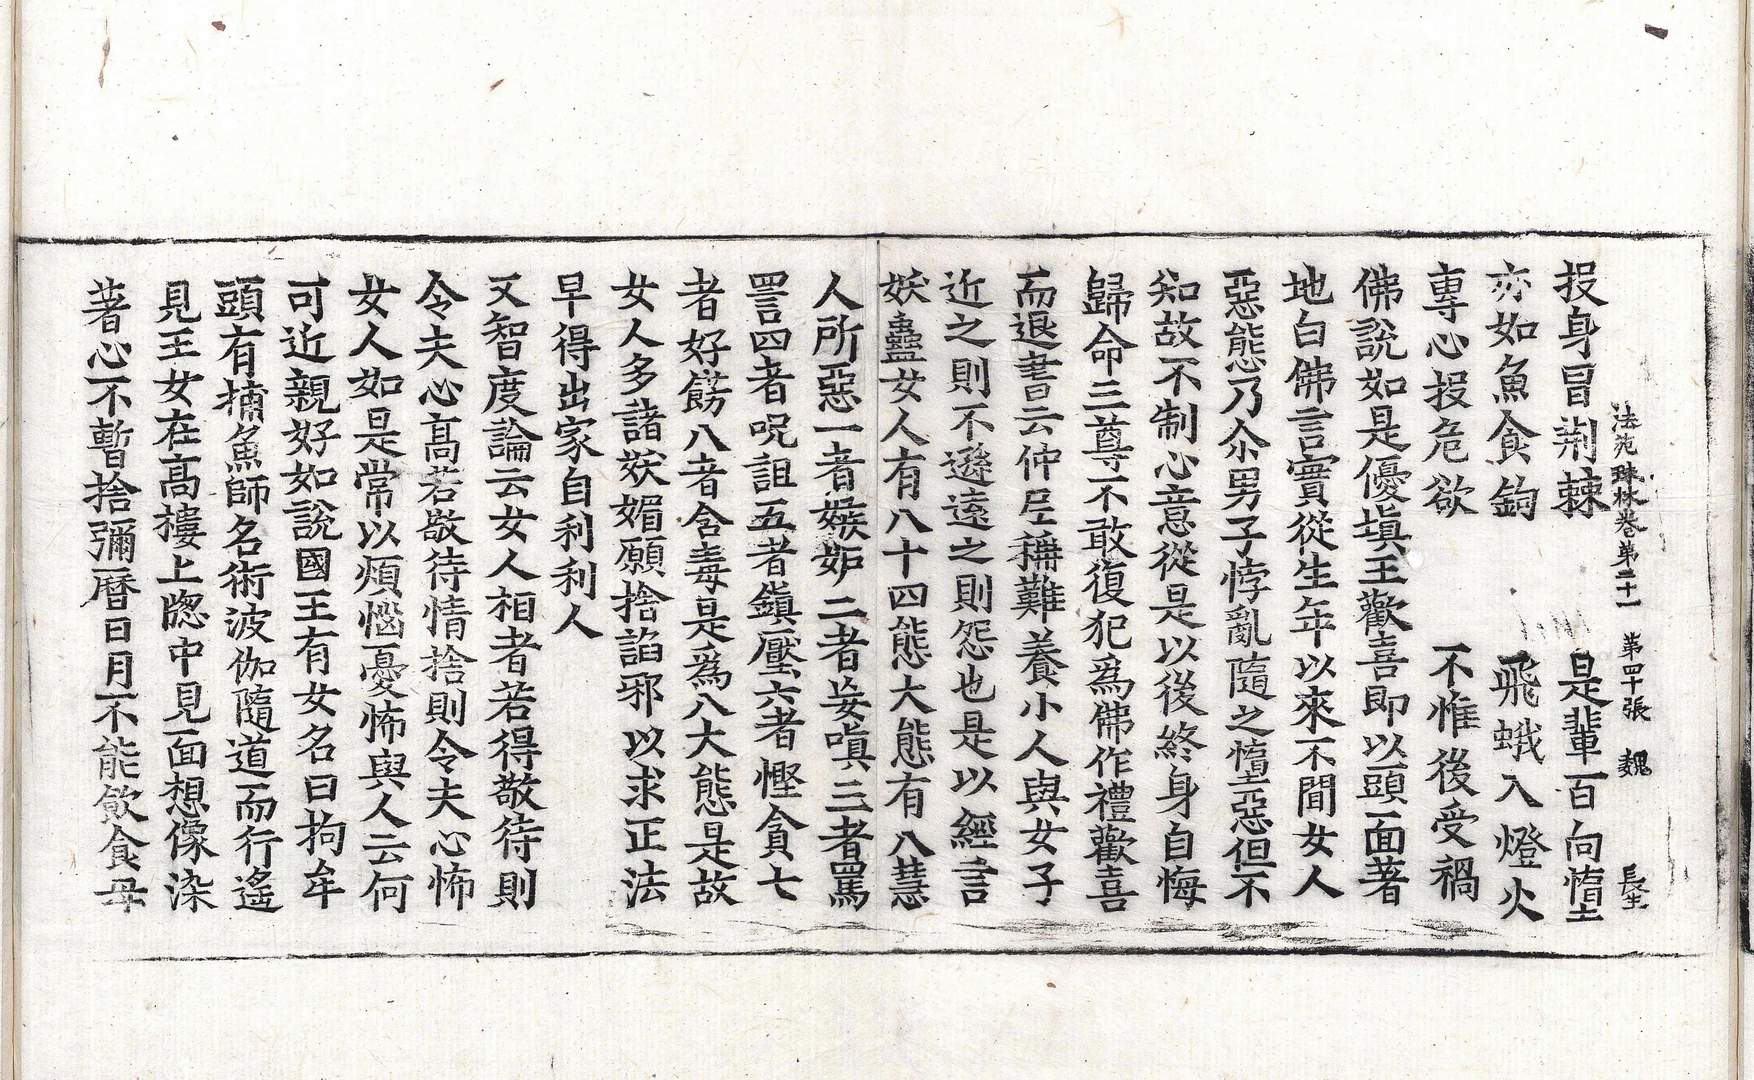 法苑珠林卷第二十一 第四十張 魏 長生
投身冒荆棘 是輩百向墮
亦如魚食鉤 飛蛾入燈火
專心投危欲 不惟後受禍
佛說如是優塡王歡喜即以頭面著
地白佛言實從生年以來不聞女人
惡態乃尒男子悖亂隨之墮惡但不
知故不制心意從是以後終身自悔
歸命三尊不敢復犯爲佛作禮歡喜
而退書云仲尼稱難養小人與女子
近之則不遜遠之則怨也是以經言
妖蠱女人有八十四態大態有八慧
人所惡一者嫉妬二者妄嗔三者罵
詈四者呪詛五者鎭壓六者慳貪七
者好飾八者含毒是爲八大態是故
女人多諸妖媚願捨諂邪以求正法
早得出家自利利人
又智度論云女人相者若得敬待則
令夫心高若敬待情捨則令夫心怖
女人如是常以煩惱憂怖與人云何
可近親好如說國王有女名曰拘牟
頭有捕魚師名術波伽隨道而行遙
見王女在高樓上牎中見面想像染
著心不暫捨彌曆日月不能飮食母